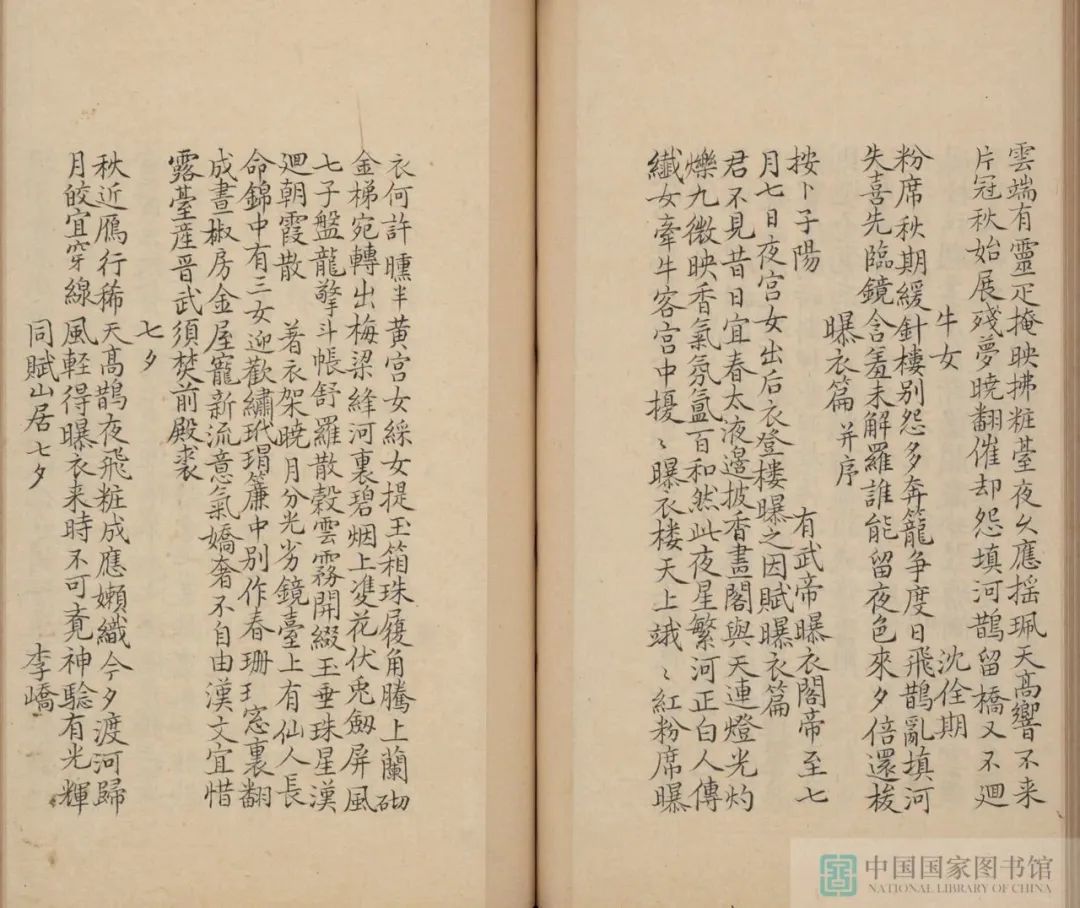 雲端有靈疋掩映拂粧臺夜久應揺珮天髙響不来
片冠秋始展殘夢曉翻催却怨填河鵲留橋又不廻
牛女
沈佺期
粉席秋期緩針樓别怨多奔龍争度日飛鵲亂填河
失喜先臨鏡含羞未解羅誰能留夜色來夕倍還梭
曝衣篇 并序
按卜子陽
有武帝曝衣閣帝至七
月七日夜宫女出后衣登樓曝之因賦曝衣篇
君不見昔日宜春太液邊披香畫閣與天連燈光灼
爍九微映香氣氛氲百和然此夜星繁河正白人傳
織女牽牛客宫中擾〻曝衣楼天上娥〻紅粉席曝
衣何許曛半黄宫女綵女提玉箱珠履角騰上蘭砌
金梯宛轉出梅梁絳河裏碧烟上雙花伏兎劔屏風
七子盤龍擎斗帳舒羅散縠雲霧開綴玉垂珠星漢
廻朝霞散 著衣架曉月分光劣鏡臺上有仙人長
命錦中有三女迎歡繡玳瑁簾中别作春珊瑚窓裏翻
成晝椒房金屋寵新流意氣嬌奢不自由漢文宜惜
露臺産晋武須焚前殿裘
七夕
秋近鴈行稀天髙鵲夜飛粧成應嬾織今夕渡河歸
月皎宜穿線風輕得曝衣来時不可竟神騐有光輝
同賦山居七夕
李嶠
中国国家图书馆
NATIONAL LIBRARY OF CHINA